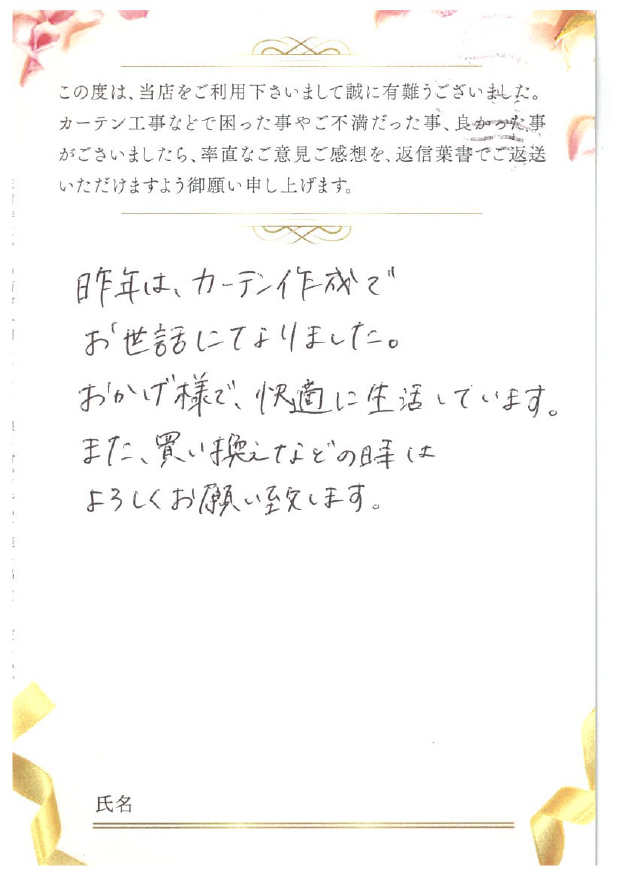 この度は、当店をご利用下さいまして誠に有難うございました。
カーテン工事などで困った事やご不満だった事、良かった事
がございましたら、率直なご意見ご感想を、返信葉書でご返送
いただけますよう御願い申し上げます。
昨年は、カーテン作成で
お世話にてなりました。
おかげ様で、快適に生活しています。
また、買い換えなどの時は
よろしくお願い致します。
氏名